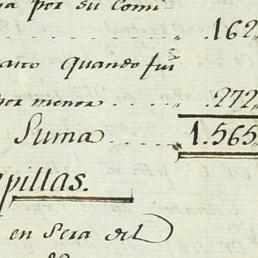 por su Comi-
162,,
Quando fui
por menor 272,,
Suma 1.565,,
pillas.
en Seca del